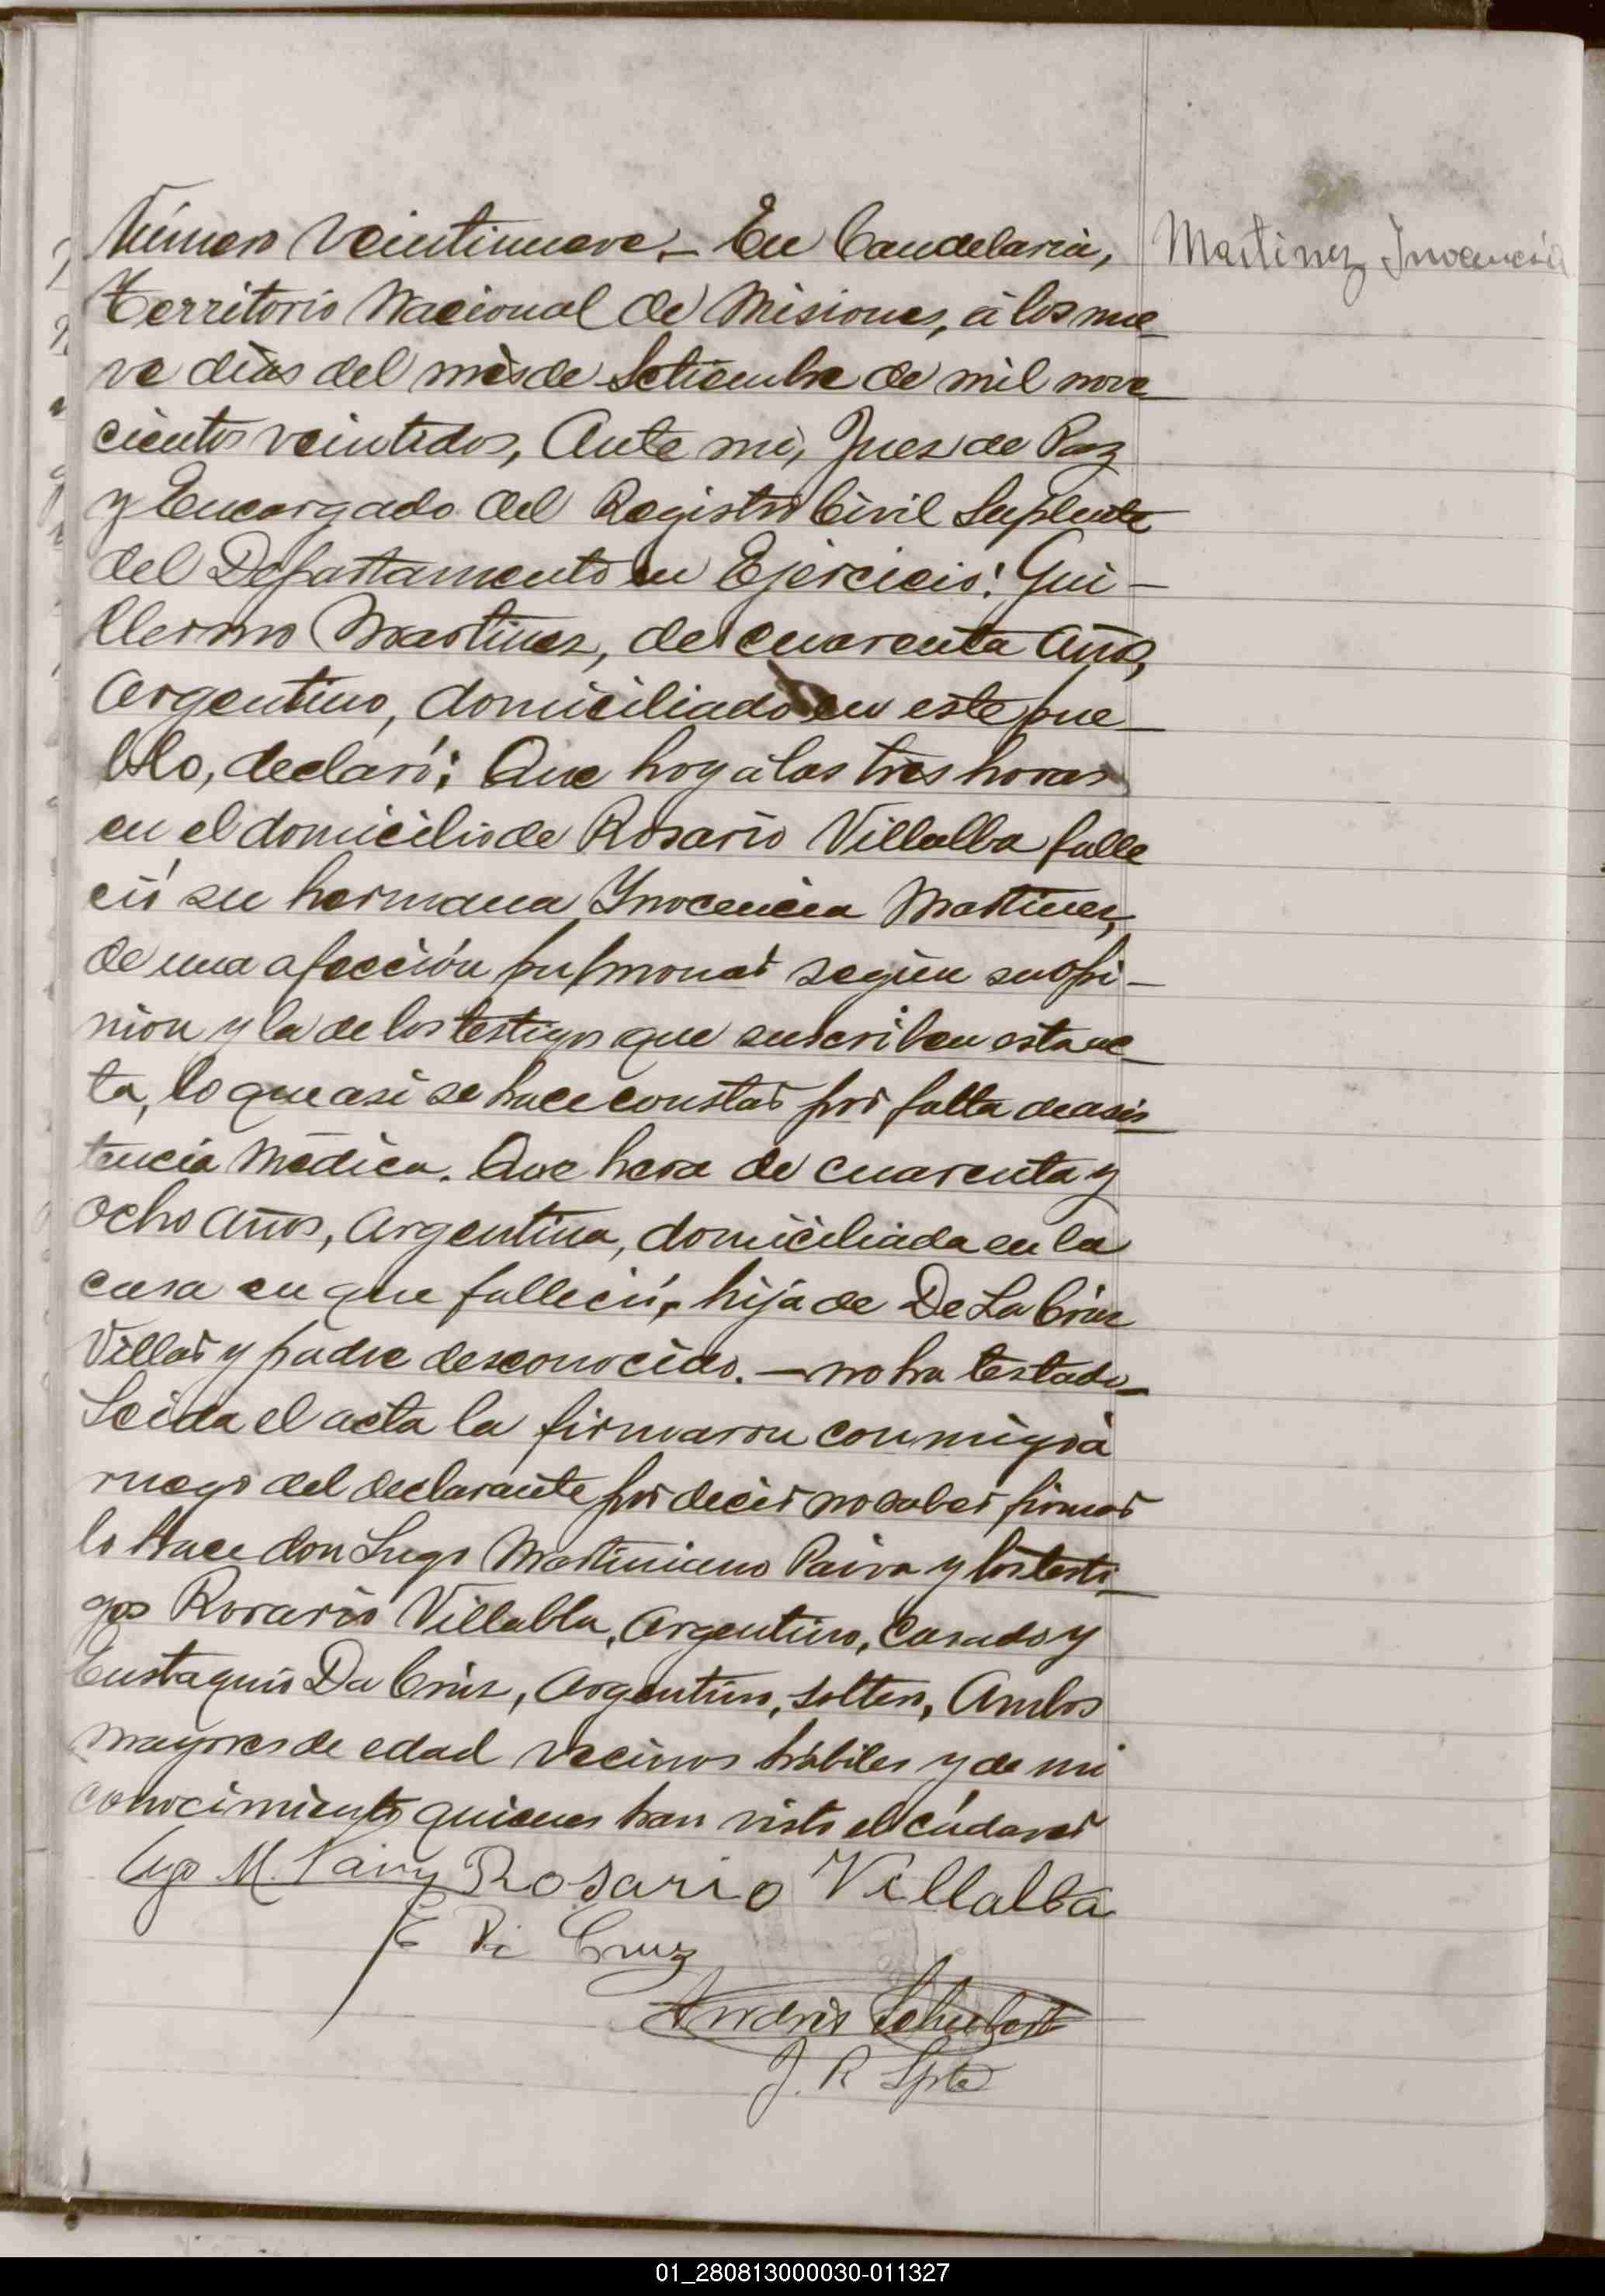 Número Veintinueve.- En Candelaria,
Martinez Inocencia
Territorio Nacional de Misiones, á los nue-
ve dias del més de Setiembre de mil nove
cientos veintidos, Ante mi, Juez de Paz
y Encargado del Registro Civil Suplente
del Departamento en Ejercicio: Gui-
llermo Martinez, de cuarenta años,
Argentino, domiciliado en este pue-
blo, declaró: Que hoy á las tres horas
en el domicilio de Rosario Villalba falle
ció su hermana Ynocencia Martinez,
de una afección pulmonar según su opi-
nion y la de los testigos que suscriben esta ac-
ta, lo que asi se hace constar por falta de asis
tencia Médica. Que hera de cuarenta y
ocho años, Argentina, domiciliada en la
casa en que falleció, hija de De La Cruz
Villar y padre desconocido. - no ha testado-
Leida el acta la firmaron conmigo á
ruego del declarante por decir no saber firmar
lo hace don Lugo Martiniano Paiva y los testi-
gos Rosario Villabla, Argentino, Casado y
Eustaquio Da Cruz, Argentino, soltero, Ambos
mayores de edad vecinos hábiles y de mi
conocimiento quienes han visto el cádaver
Lugo M. Paiva Rosario Villalba
E Di Cruz
Andrés Schubert
J. P. Splte
01_280813000030-011327